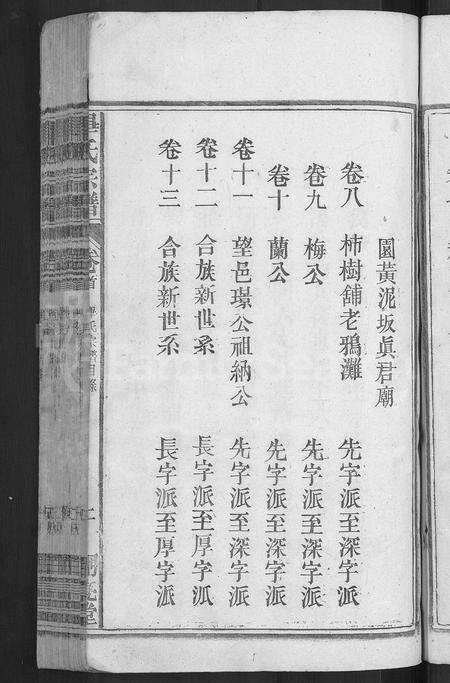 園黃泥坂眞君廟
卷八 柿樹舖老鴉灘 先字派至深字派
卷九 梅公 先字派至深字派
卷十 蘭公 先字派至深字派
卷十一 望邑璟公祖納公 先字派至深字派
卷十二 合族新世系 長字派至厚字派
卷十三 合族新世系 長字派至厚字派
氏宗譜 卷首